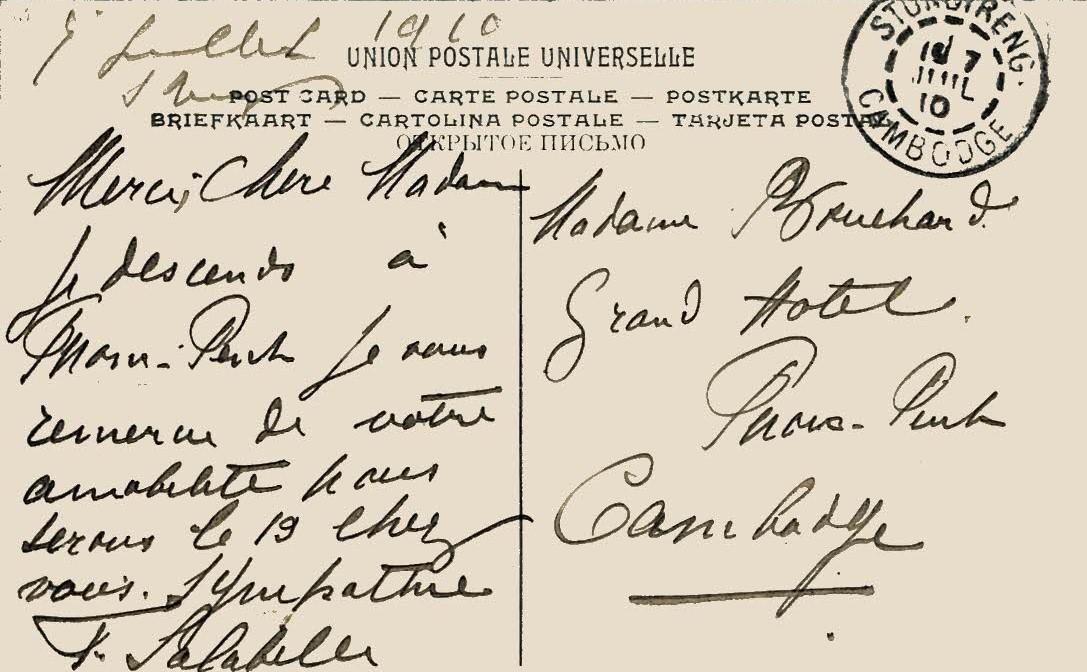 Juillet 1910
UNION POSTALE UNIVERSELLE
POST CARD — CARTE POSTALE — POSTKARTE
BRIEFKAART — CARTOLINA POSTALE — TARJETA POSTAL
ОТКРЫТОЕ ПИСЬМО
STUNGTRENG
7
JUIL
10
CAMBODGE
Merci, Chere Madame
Je descends à
Pnom-Penh je vous
remercie de votre
amabilité nous
serons le 19 chez
vous. Sympathie
Madame Bouchard
Grand Hotel
Pnom-Penh
Cambodge